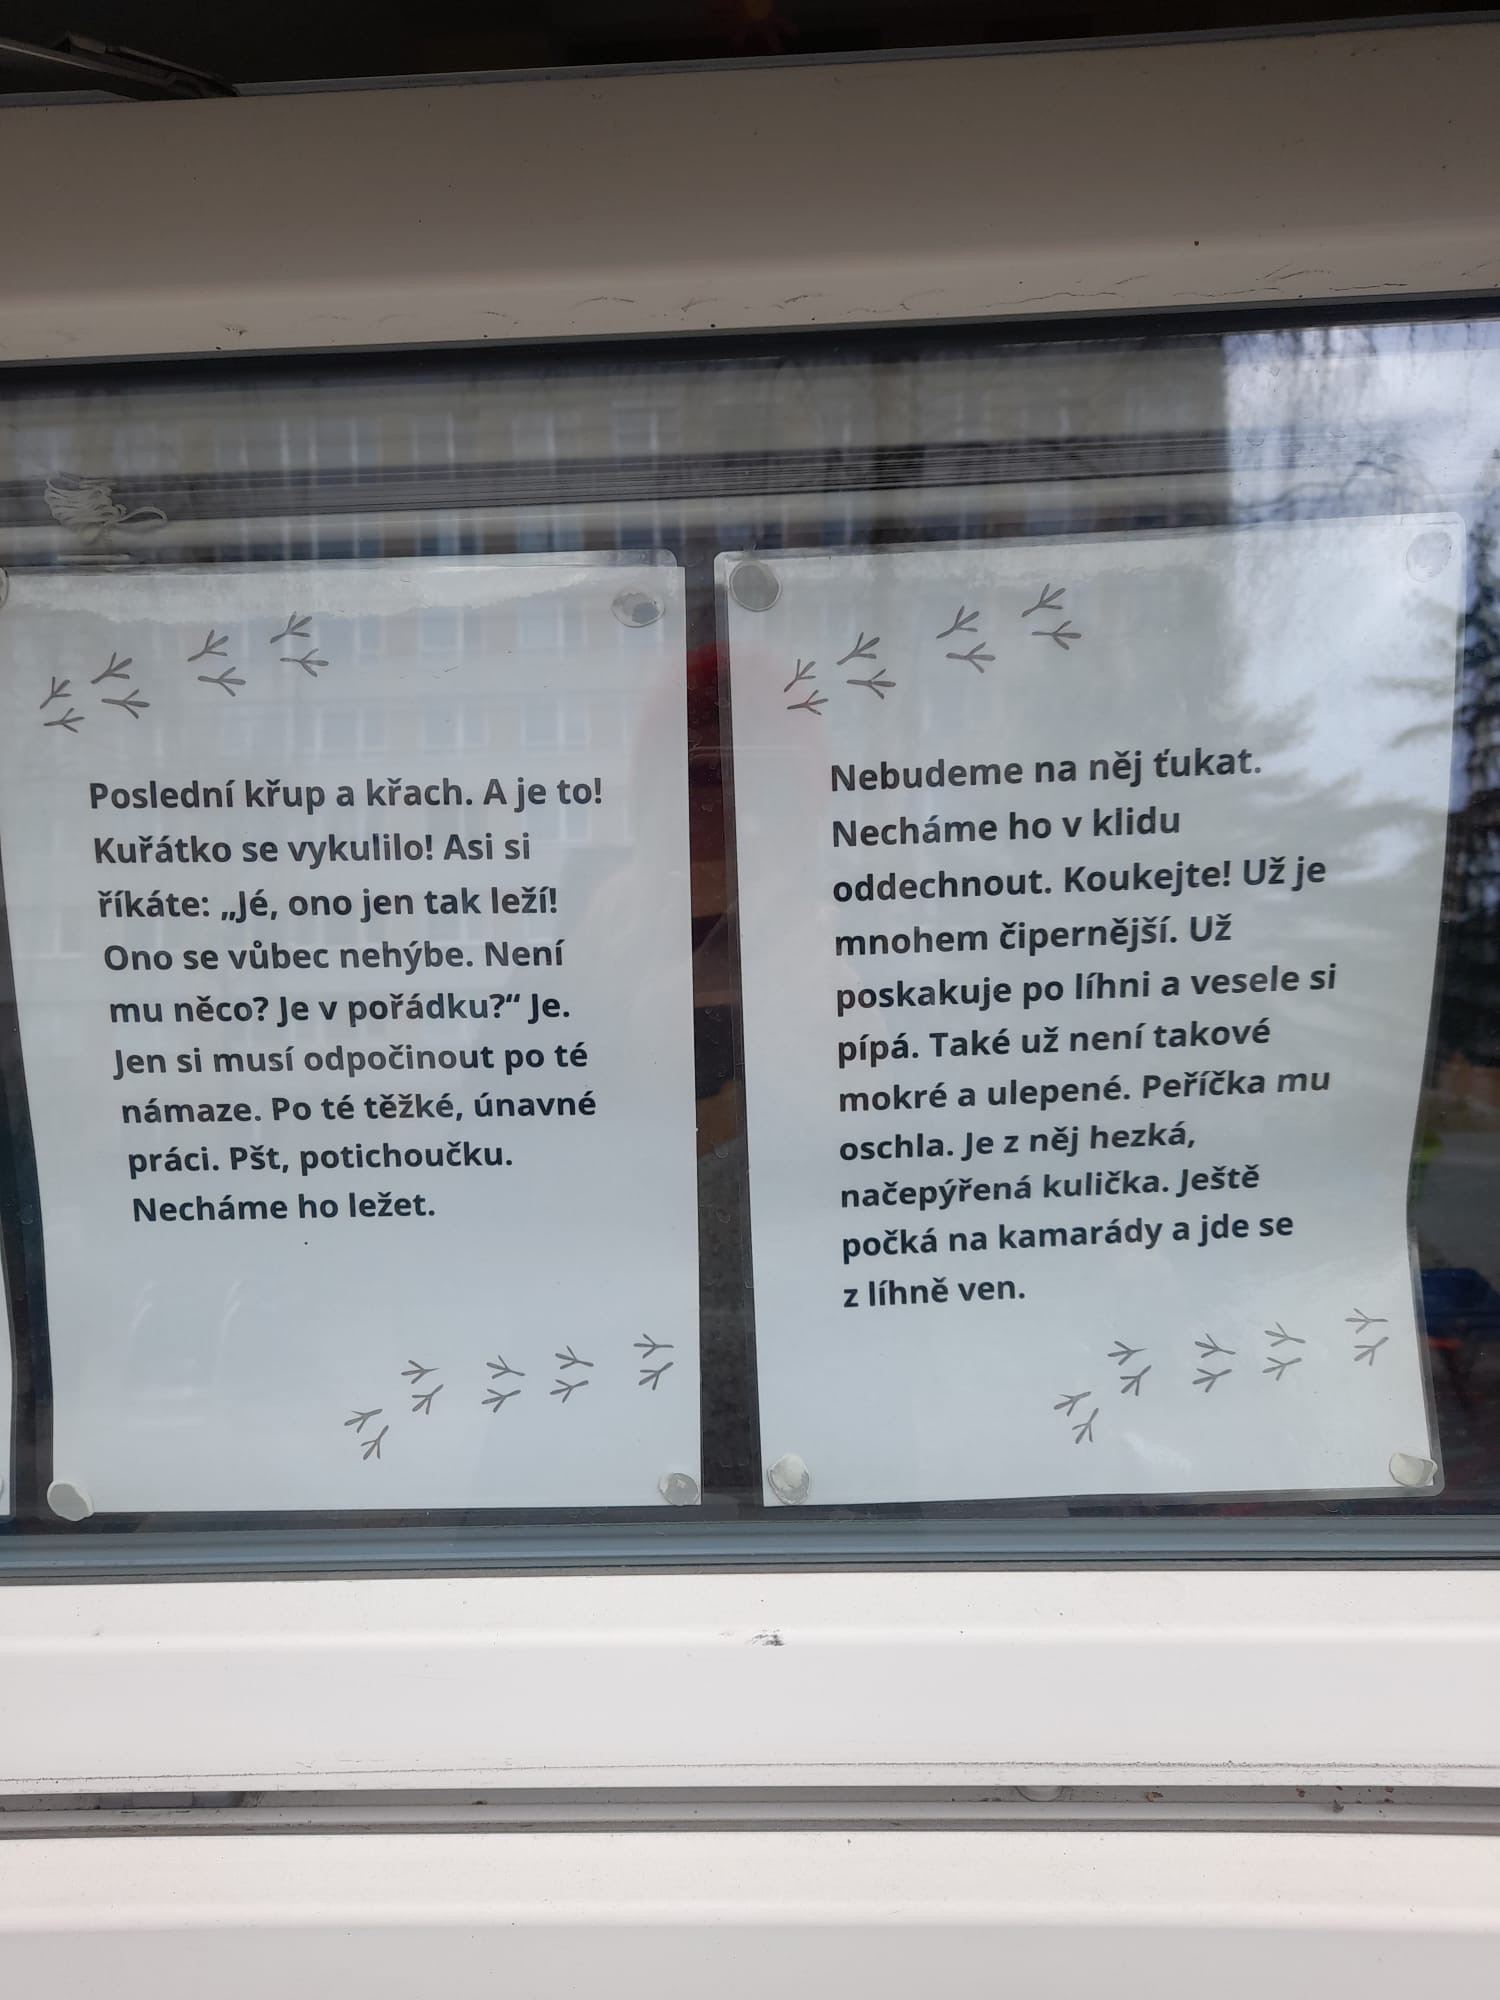 Poslední křup a křach. A je to!
Kuřátko se vykulilo! Asi si
říkáte: „Jé, ono jen tak leží!
Ono se vůbec nehýbe. Není
mu něco? Je v pořádku?“ Je.
Jen si musí odpočinout po té
námaze. Po té těžké, únavné
práci. Pšt, potichoučku.
Necháme ho ležet.
Nebudeme na něj ťukat.
Necháme ho v klidu
oddechnout. Koukejte! Už je
mnohem čipernější. Už
poskakuje po líhni a vesele si
pípá. Také už není takové
mokré a ulepené. Peříčka mu
oschla. Je z něj hezká,
načepýřená kulička. Ještě
počká na kamarády a jde se
z líhně ven.